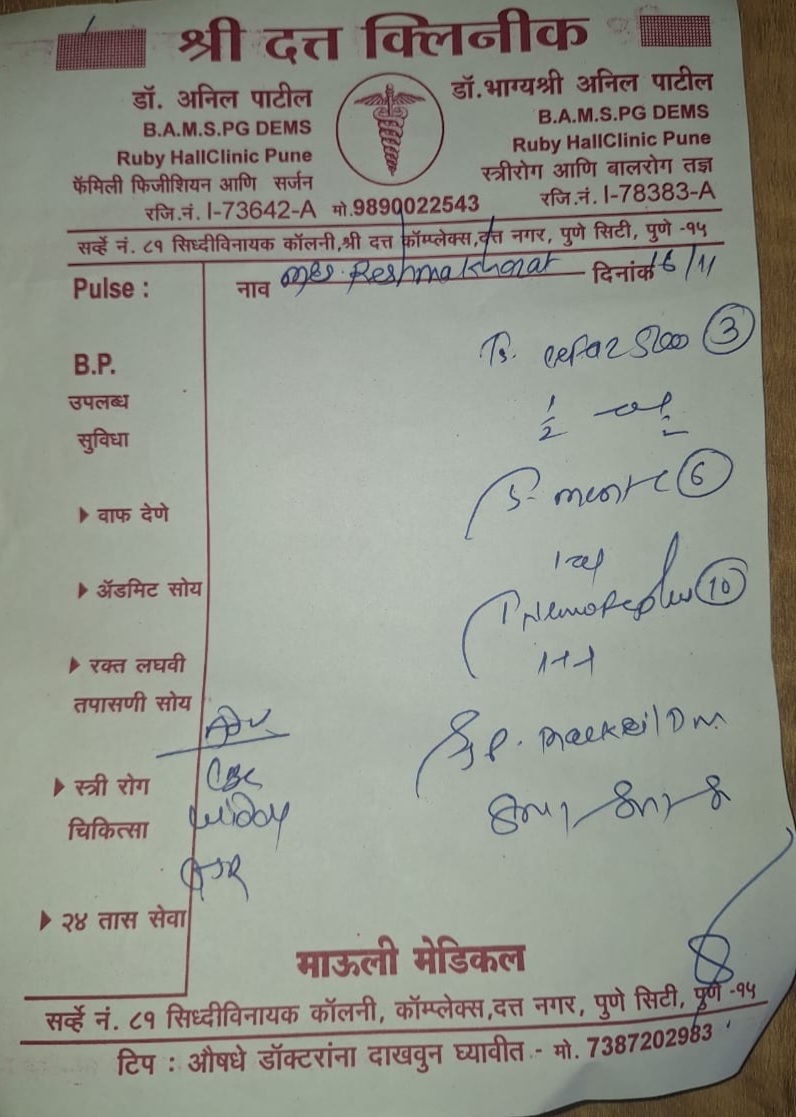 श्री दत्त क्लिनीक
डॉ. अनिल पाटील
B.A.M.S.PG DEMS
Ruby HallClinic Pune
फॅमिली फिजीशियन आणि सर्जन
रजि.नं. I-73642-A मो.9890022543
डॉ.भाग्यश्री अनिल पाटील
B.A.M.S.PG DEMS
Ruby HallClinic Pune
स्त्रीरोग आणि बालरोग तज्ञ
रजि.नं. I-78383-A
सर्व्हे नं. ८१ सिध्दीविनायक कॉलनी,श्री दत्त कॉम्प्लेक्स,दत्त नगर, पुणे सिटी, पुणे -१५
Pulse :
नाव Mrs. Reshma Kharat दिनांक 16/11
B.P.
उपलब्ध
सुविधा
3
1/2
▶ वाफ देणे
6
▶ ॲडमिट सोय
10
1-1-1
▶ रक्त लघवी
तपासणी सोय
Adv
▶ स्त्री रोग
CBC
चिकित्सा
Widal
▶ २४ तास सेवा
माऊली मेडिकल
सर्व्हे नं. ८१ सिध्दीविनायक कॉलनी, कॉम्प्लेक्स,दत्त नगर, पुणे सिटी, पुणे -१५
टिप : औषधे डॉक्टरांना दाखवुन घ्यावीत - मो. 7387202983